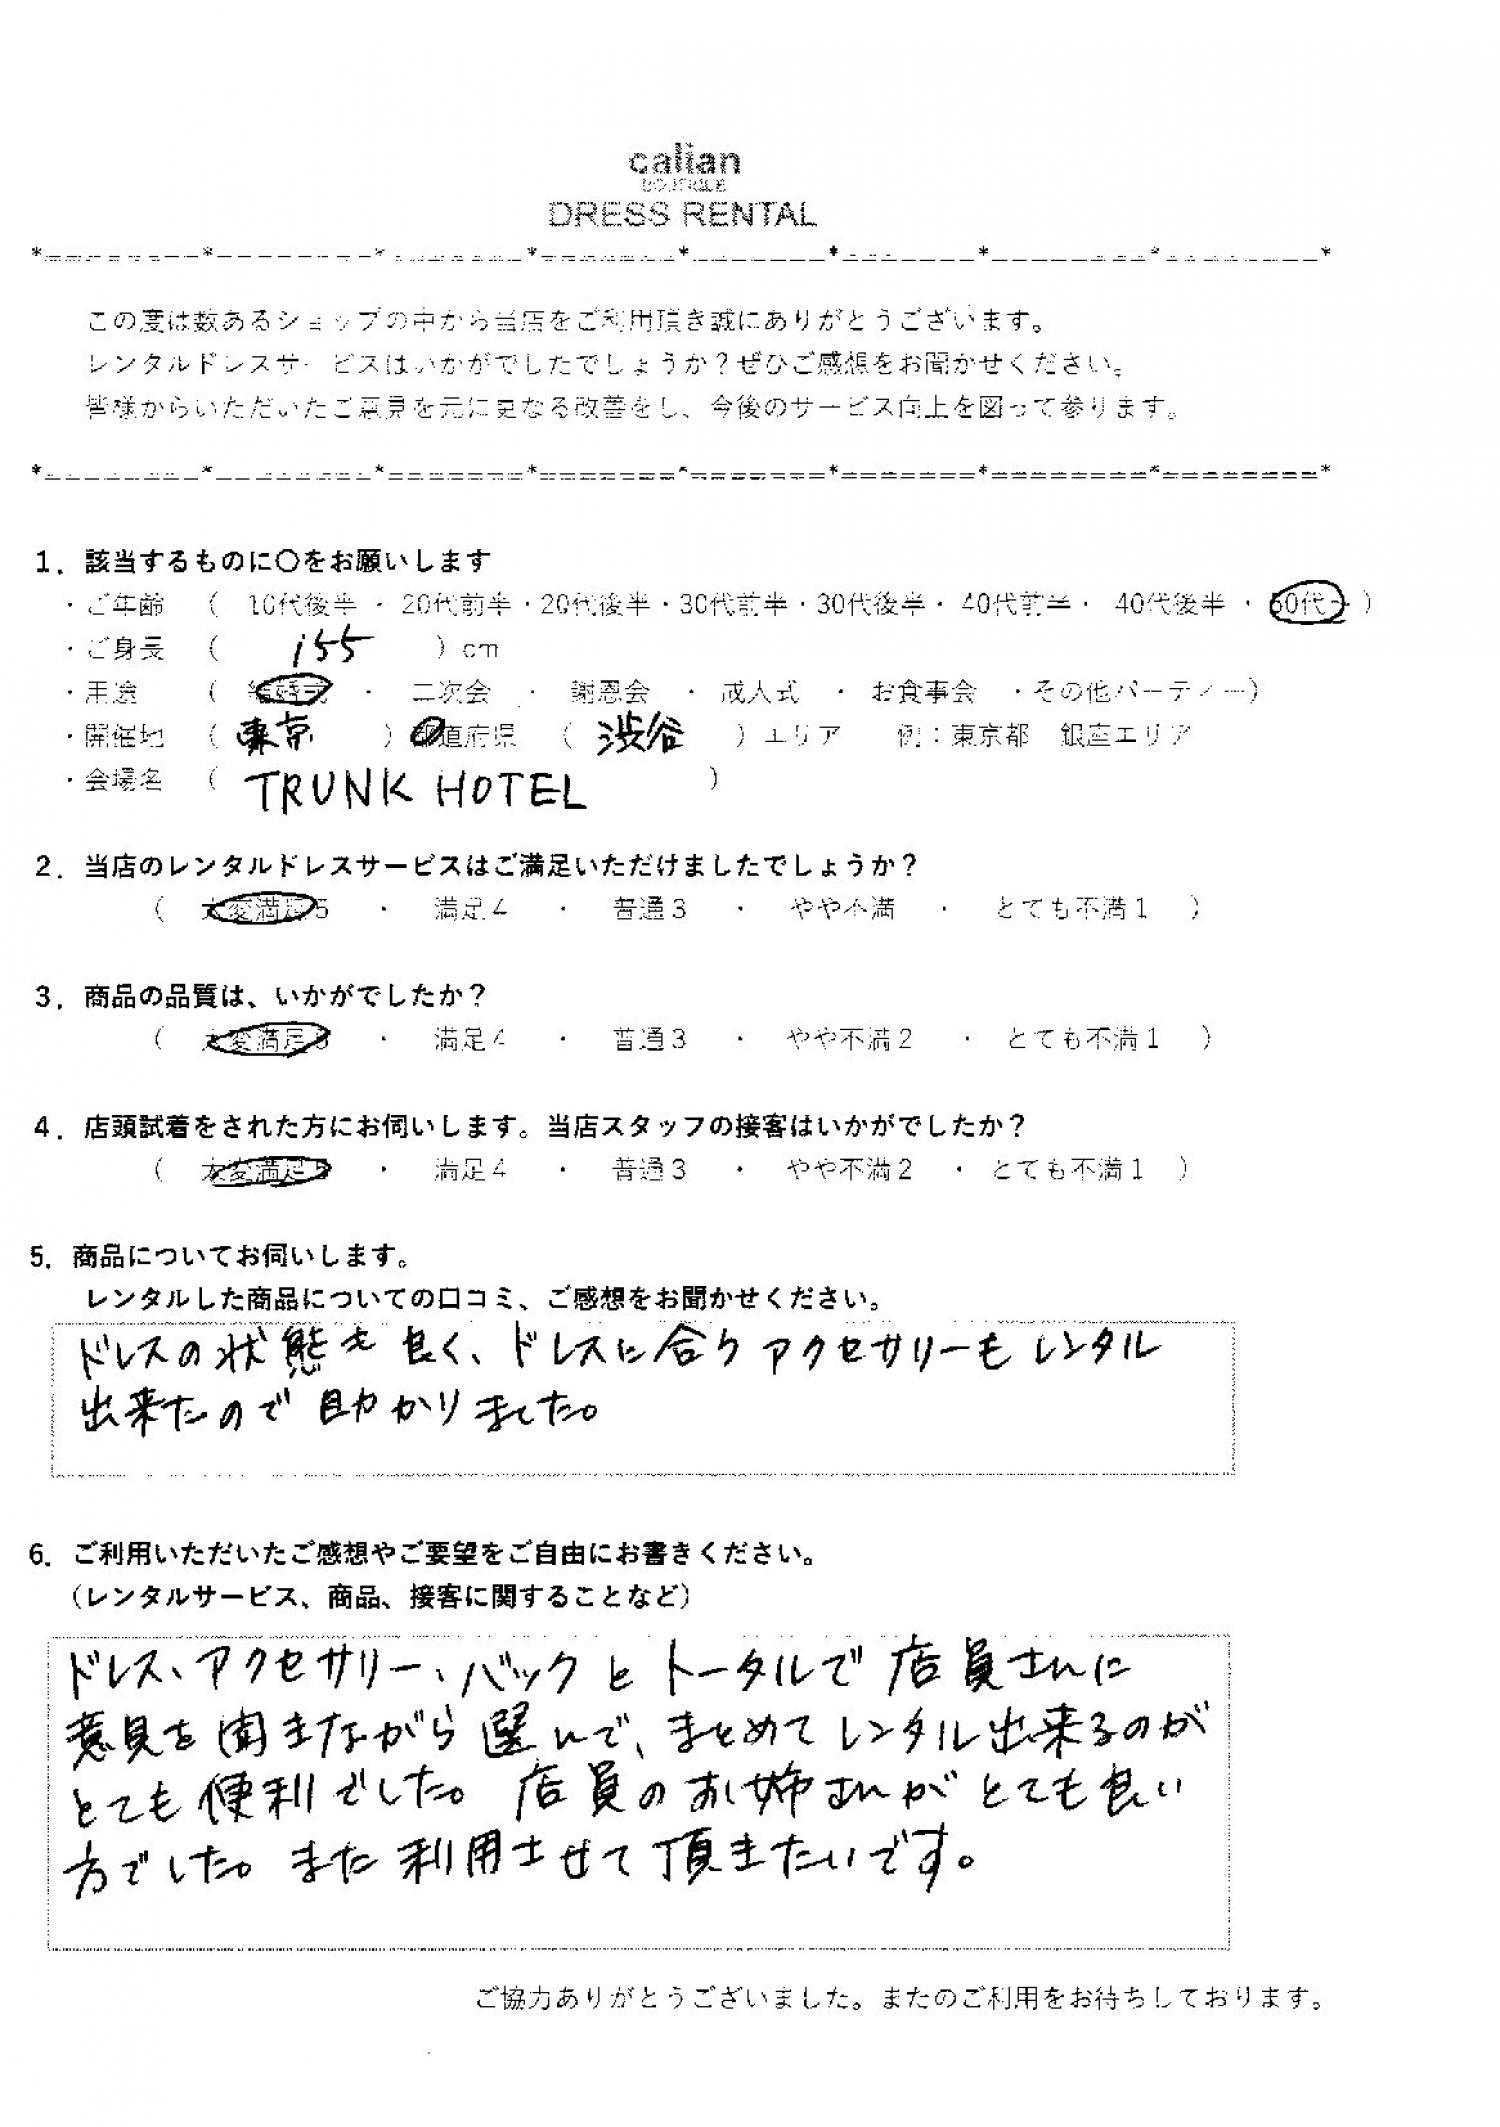 calian
BOUTIQUE
DRESS RENTAL
*========*========*========*========*========*========*========*========*
この度は数あるショップの中から当店をご利用頂き誠にありがとうございます。
レンタルドレスサービスはいかがでしたでしょうか？ぜひご感想をお聞かせください。
皆様からいただいたご意見を元に更なる改善をし、今後のサービス向上を図って参ります。
*========*========*========*========*========*========*========*========*
1．該当するものに〇をお願いします
・ご年齢　（　10代後半 ・ 20代前半・20代後半・30代前半・30代後半・ 40代前半・ 40代後半 ・ 50代～ ）
・ご身長　（　155　）cm
・用途　（　結婚式　・　二次会　・　謝恩会　・　成人式　・　お食事会　・その他パーティー）
・開催地　（ 東京 ）都道府県　（ 渋谷 ）エリア　例：東京都　銀座エリア
・会場名　（ TRUNK HOTEL ）
2．当店のレンタルドレスサービスはご満足いただけましたでしょうか？
（　大変満足5　・　満足4　・　普通3　・　やや不満　・　とても不満1　）
3．商品の品質は、いかがでしたか？
（　大変満足5　・　満足4　・　普通3　・　やや不満2　・　とても不満1　）
4．店頭試着をされた方にお伺いします。当店スタッフの接客はいかがでしたか？
（　大変満足5　・　満足4　・　普通3　・　やや不満2　・ とても不満1　）
5．商品についてお伺いします。
レンタルした商品についての口コミ、ご感想をお聞かせください。
ドレスの状態も良く、ドレスに合うアクセサリーもレンタル
出来たので助かりました。
6．ご利用いただいたご感想やご要望をご自由にお書きください。
（レンタルサービス、商品、接客に関することなど）
ドレス、アクセサリー、バックとトータルで店員さんに
意見を聞きながら選んで、まとめてレンタル出来るのが
とても便利でした。店員のお姉さんがとても良い
方でした。また利用させて頂きたいです。
ご協力ありがとうございました。またのご利用をお待ちしております。